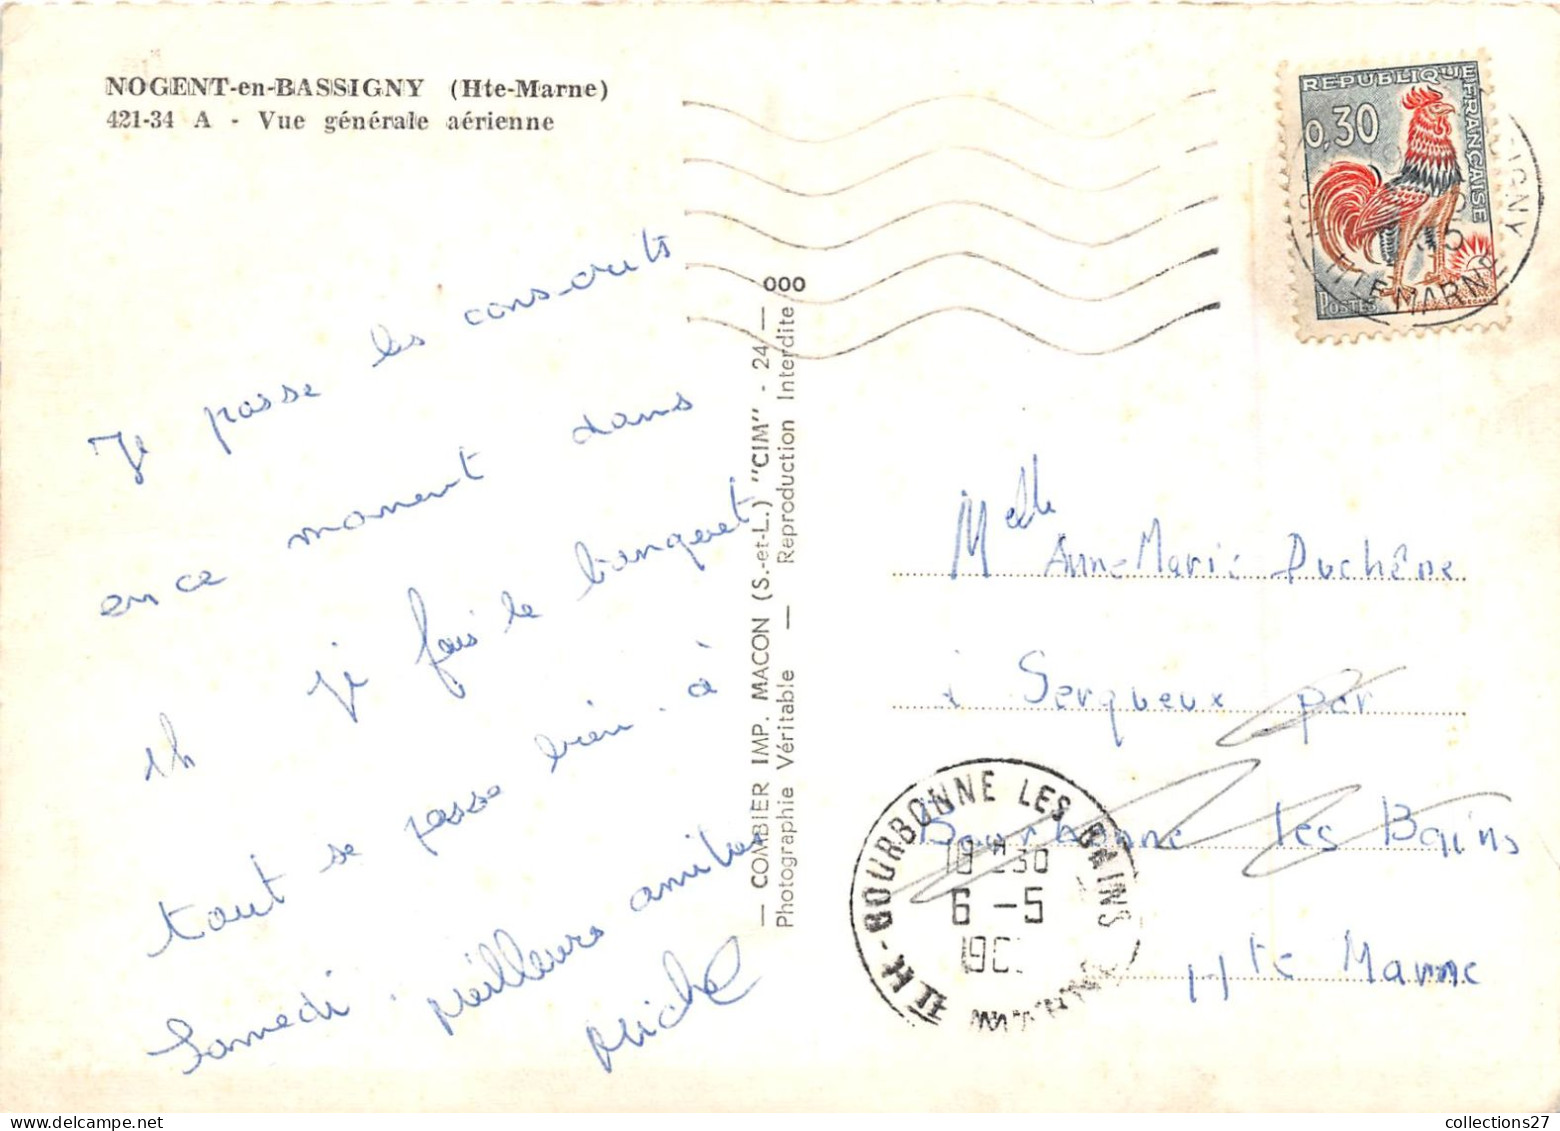 NOGENT-en-BASSIGNY (Hte-Marne)
421-34 A - Vue générale aérienne
REPUBLIQUE FRANÇAISE
0,30
POSTES
HTE MARNE
Je passe les cons-crits
en ce moment dans
1h je fais le banquet
tout se passe bien. à
Samedi. meilleurs amitiés
Michel
— COMBIER IMP. MACON (S.-et-L.) "CIM" - 24 —
Photographie Véritable — Reproduction Interdite
000
Melle Anne-Marie Duchêne
à Serqueux par
Bourbonne les Bains
Hte Marne
BOURBONNE LES BAINS
6 -5
collections27